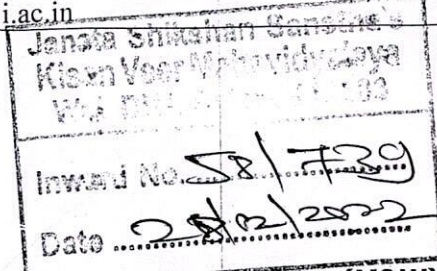 i.ac.in
Janata Shikshan Sanstha's
Kisan Veer Mahavidyalaya
Inward No. 58/739
Date /02/2022